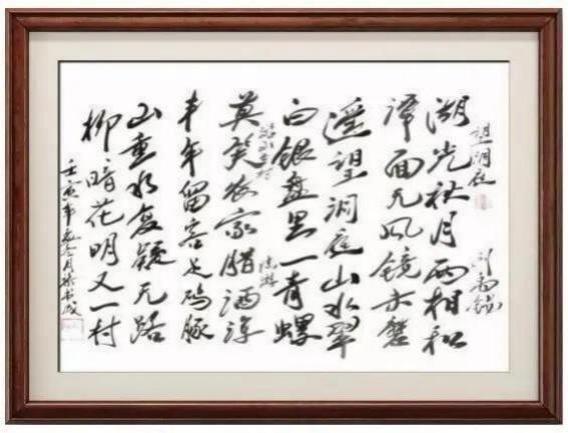 望洞庭 刘禹锡
湖光秋月两相和
潭面无风镜未磨
遥望洞庭山水翠
白银盘里一青螺
游山西村 陆游
莫笑农家腊酒浑
丰年留客足鸡豚
山重水复疑无路
柳暗花明又一村
壬寅年